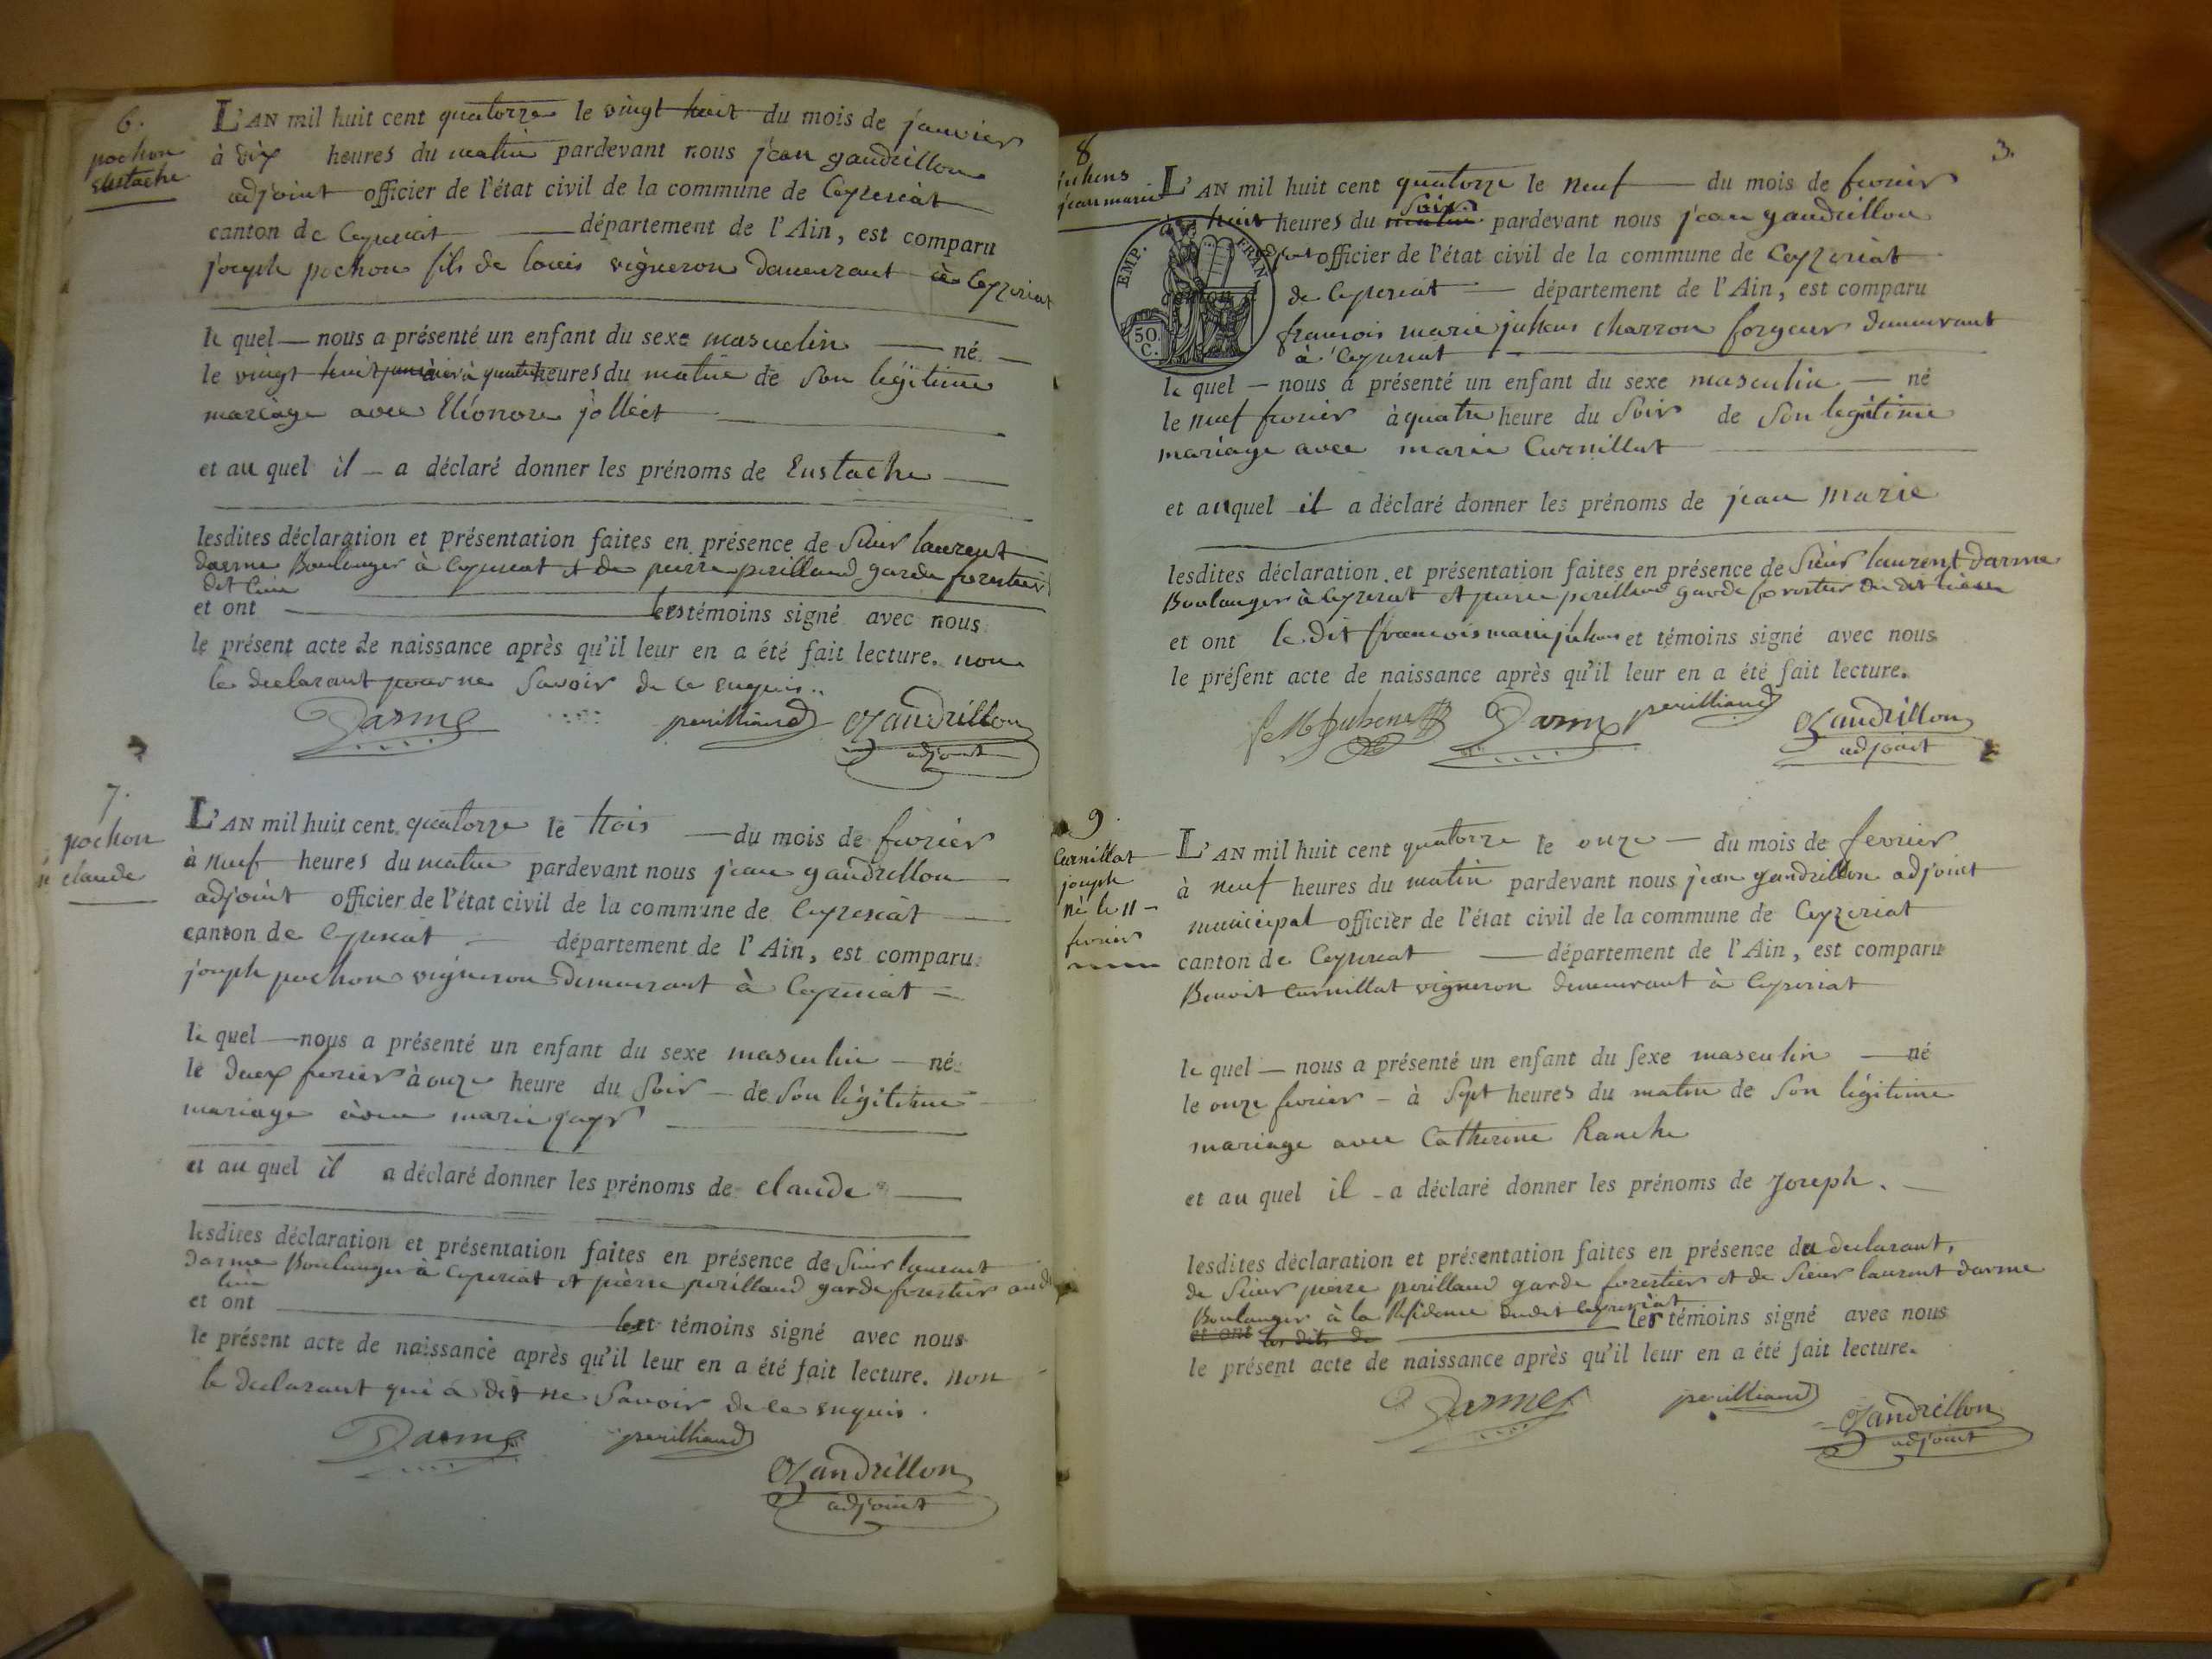 6.
pochon
Eustache
L'AN mil huit cent quatorze le vingt huit du mois de janvier
à dix heures du matin pardevant nous jean gandrillon
adjoint officier de l'état civil de la commune de Ceyzeriat
canton de Ceyzeriat département de l'Ain, est comparu
joseph pochon fils de louis vigneron demeurant à Ceyzeriat
le quel nous a présenté un enfant du sexe masculin né
le vingt huit janvier à quatre heures du matin de son légitime
mariage avec Eléonore jolliet
et au quel il a déclaré donner les prénoms de Eustache
lesdites déclaration et présentation faites en présence de Sieur laurent
darme Boulanger à Ceyzeriat et de pierre perilland garde forestier
dit lieu
et ont les témoins signé avec nous
le présent acte de naissance après qu'il leur en a été fait lecture. non
le declarant pour ne savoir de ce enquis.
Darme perilliand Gandrillon
adjoint
7.
pochon
claude
L'AN mil huit cent quatorze le trois du mois de fevrier
à neuf heures du matin pardevant nous jean gandrillon
adjoint officier de l'état civil de la commune de Ceyzeriat
canton de Ceyzeriat département de l'Ain, est comparu
joseph pochon vigneron demeurant à Ceyzeriat
le quel nous a présenté un enfant du sexe masculin né
le deux fevrier à onze heure du soir de son légitime
mariage avec marie
et au quel il a déclaré donner les prénoms de claude
lesdites déclaration et présentation faites en présence de Sieur laurent
darme Boulanger à Ceyzeriat et pierre perilland garde forestier au dit
lieu
et ont les témoins signé avec nous
le présent acte de naissance après qu'il leur en a été fait lecture. non
le declarant qui a dit ne savoir de ce enquis.
Darme perilliand
Gandrillon
adjoint
3.
8
juhens
jean marie
L'AN mil huit cent quatorze le neuf du mois de fevrier
à huit heures du matin soir pardevant nous jean gandrillon
officier de l'état civil de la commune de Ceyzeriat
canton de Ceyzeriat département de l'Ain, est comparu
EMP. FRAN
50.
C.
francois marie juhens charron forgeur demeurant
à Ceyzeriat
le quel nous a présenté un enfant du sexe masculin né
le neuf fevrier à quatre heure du soir de son legitime
mariage avec marie Curnillat
et auquel il a déclaré donner les prénoms de jean marie
lesdites déclaration et présentation faites en présence de Sieur laurent darme
Boulanger à Ceyzeriat et pierre perilland garde forestier du dit lieu
et ont le dit francois marie juhens et témoins signé avec nous
le présent acte de naissance après qu'il leur en a été fait lecture.
f M Juhens Darme perilliand Gandrillon
adjoint
9.
Curnillat
joseph
né le 11
fevrier
L'AN mil huit cent quatorze le onze du mois de fevrier
à neuf heures du matin pardevant nous jean gandrillon adjoint
municipal officier de l'état civil de la commune de Ceyzeriat
canton de Ceyzeriat département de l'Ain, est comparu
Benoit Curnillat vigneron demeurant à Ceyzeriat
le quel nous a présenté un enfant du sexe masculin né
le onze fevrier à sept heures du matin de son légitime
mariage avec Catherine Ranche
et au quel il a déclaré donner les prénoms de Joseph.
lesdites déclaration et présentation faites en présence du declarant,
de Sieur pierre perilland garde forestier et de Sieur laurent darme
Boulanger à la Résidence dudit Ceyzeriat
et ont les dits de les témoins signé avec nous
le présent acte de naissance après qu'il leur en a été fait lecture.
Darme perilliand Gandrillon
adjoint